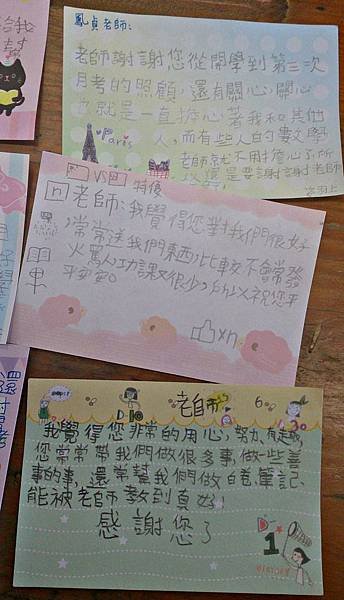 鳳貞老師：
老師謝謝您從開學到第三次
月考的照顧，還有關心，關心
也就是一直擔心著我和其他
人，而有些人的數學
老師就不用擔心了所
還是要謝謝老師
Paris
VS 特優
老師：我覺得您對我們很好
，常常送我們東西，比較不會常發
火罵人功課又很少，所以祝您平
平安安。
老師
6
D 10
4 30
我覺得您非常的用心，努力，有
您常常帶我們做很多事，做些善
事的事，還常幫我們做白卷筆記，
能被老師教到真好！
感謝您了
D-
1
VICTORY